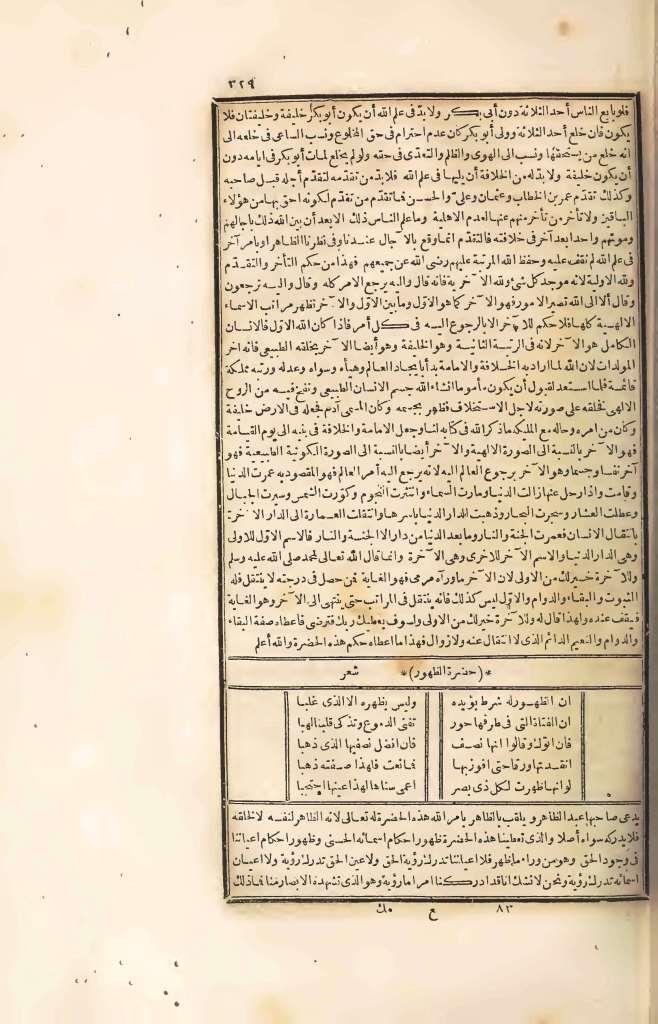 ٣٢٩
فلو بايع الناس أحد الثلاثة دون أبى بكر ولا بد فى علم الله أن يكون أبو بكر خليفة وخليفتان فلا
يكون فان خلع أحد الثلاثة وولى أبو بكر كان عدم احترام فى حق المخلوع ونسب الساعى فى خلعه الى
انه خلع من يستحقها ونسب الى الهوى والظلم والتعدى فى حقه ولو لم يخلع لمات أبو بكر فى ايامه دون
أن يكون خليفة ولا بد له من الخلافة أن يليها فى علم الله فلا بد من تقدمه لتقدم أجله قبل صاحبه
وكذلك تقدم عمر بن الخطاب وعثمان وعلى والحسن فما تقدم من تقدم لكونه احق بها من هؤلاء
الباقين ولا تأخر من تأخر منهم عنها لعدم الاهلية وما علم الناس ذلك الا بعد أن بين الله ذلك بآجالهم
وموتهم واحدا بعد آخر فى خلافته فالتقدم انما وقع بالآجال عندنا وفى نظرنا الظاهر أو بامر آخر
فى علم الله لم نقف عليه وحفظ الله المرتبة عليهم رضى الله عن جميعهم فهذا من حكم التأخر والتقدم
ولله الاولية لانه موجد كل شئ ولله الآخرية فانه قال واليه يرجع الامر كله وقال واليه ترجعون
وقال ألا الى الله تصير الامور فهو الآخر كما هو الاول وما بين الاول والآخر تظهر مراتب الاسماء
الالهية كلها فلا حكم للآخر الا بالرجوع اليه فى كل أمر فاذا كان الله الاول فالانسان
الكامل هو الآخر لانه فى الرتبة الثانية وهو الخليفة وهو أيضا الآخر بخلقه الطبيعى فانه آخر
المولدات لان الله لما اراد به الخلافة والامامة بدأ بايجاد العالم وهيأه وسواه وعدله ورتبه مملكة
قائمة فلما استعد لقبول أن يكون مأموما انشاء الله جسم الانسان الطبيعى ونفخ فيه من الروح
الالهى فخلقه على صورته لاجل الاستخلاف فظهر بجسمه وكان المسمى آدم فجعله فى الارض خليفة
وكان من امره وحاله مع الملئكة ما ذكر الله فى كتابه لنا وجعل الامامة والخلافة فى بنيه الى يوم القيامة
فهو الآخر بالنسبة الى الصورة الالهية والآخر أيضا بالنسبة الى الصورة الكونية الطبيعية فهو
آخر نفسا وجسما وهو الآخر برجوع العالم اليه لانه يرجع اليه أمر العالم فهو المقصود به عمرت الدنيا
وقامت واذا رحل عنها زالت الدنيا ومارت السماء وانتثرت النجوم وكورت الشمس وسيرت الجبال
وعطلت العشار وسجرت البحار وذهبت الدار الدنيا باسرها وانتقلت العمارة الى الدار الآخرة
بانتقال الانسان فعمرت الجنة والنار وما بعد الدنيا من دار الا الجنة والنار فالاسم الاول للاولى
وهى الدار الدنيا والاسم الآخر للاخرى وهى الآخرة وانما قال الله تعالى لمحمد صلى الله عليه وسلم
وللآخرة خير لك من الاولى لان الآخر ما وراءه مرمى فهو الغاية فمن حصل فى درجته لا ينتقل فله
الثبوت والبقاء والدوام والاول ليس كذلك فانه ينتقل فى المراتب حتى ينتهى الى الآخر وهو الغاية
فيقف عنده ولهذا قال له وللآخرة خير لك من الاولى ولسوف يعطيك ربك فترضى فاعطاه صفة البقاء
والدوام والنعيم الدائم الذى لا انتقال عنه ولا زوال فهذا ما اعطاه حكم هذه الحضرة والله أعلم
*(حضرة الظهور)* شعر
ان الظهور له شرط يؤيده وليس يظهره الا الذى غلبا
ان الفتاة التى فى طرفها حور تفنى الدموع وتذكى قلبنا لهبا
فان انوك وقالوا انها نصف فان افضل نصفيها الذى ذهبا
انقدتها ورقا حتى افوز بها فما نعت فلهذا صفته ذهبا
لو انها ظهرت لكل ذى بصر اعمى سناها لهذا عينها احتجبا
يدعى صاحبها عبد الظاهر ويلقب بالظاهر بامر الله هذه الحضرة له تعالى لانه الظاهر لنفسه لا لخلقه
فلا يدركه سواه أصلا والذى تعطينا هذه الحضرة ظهور احكام اسمائه الحسنى وظهور احكام اعياننا
فى وجود الحق وهو من وراء ما ظهر فلا اعياننا تدرك رؤية الحق ولا عين الحق تدرك رؤية ولا اعيان
اسمائه تدرك رؤية ونحن لا نشك انا قد ادركنا امرا ما رؤية وهو الذى تشهده الابصار منا فما ذلك
٨٣ ع مك